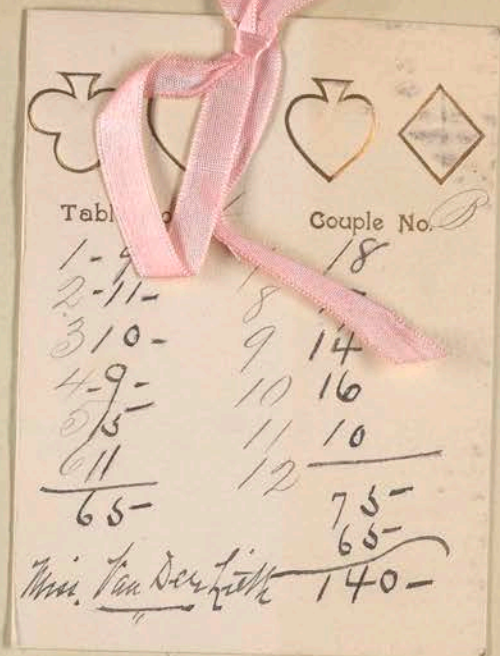 Couple No. B
1 - 9
2 - 11 -
3 10 -
4 - 9 -
5 15
6 11
65 -
18
8
9 14
10 16
11 10
12
75 -
65 -
140 -
Miss. Van Der Lieth